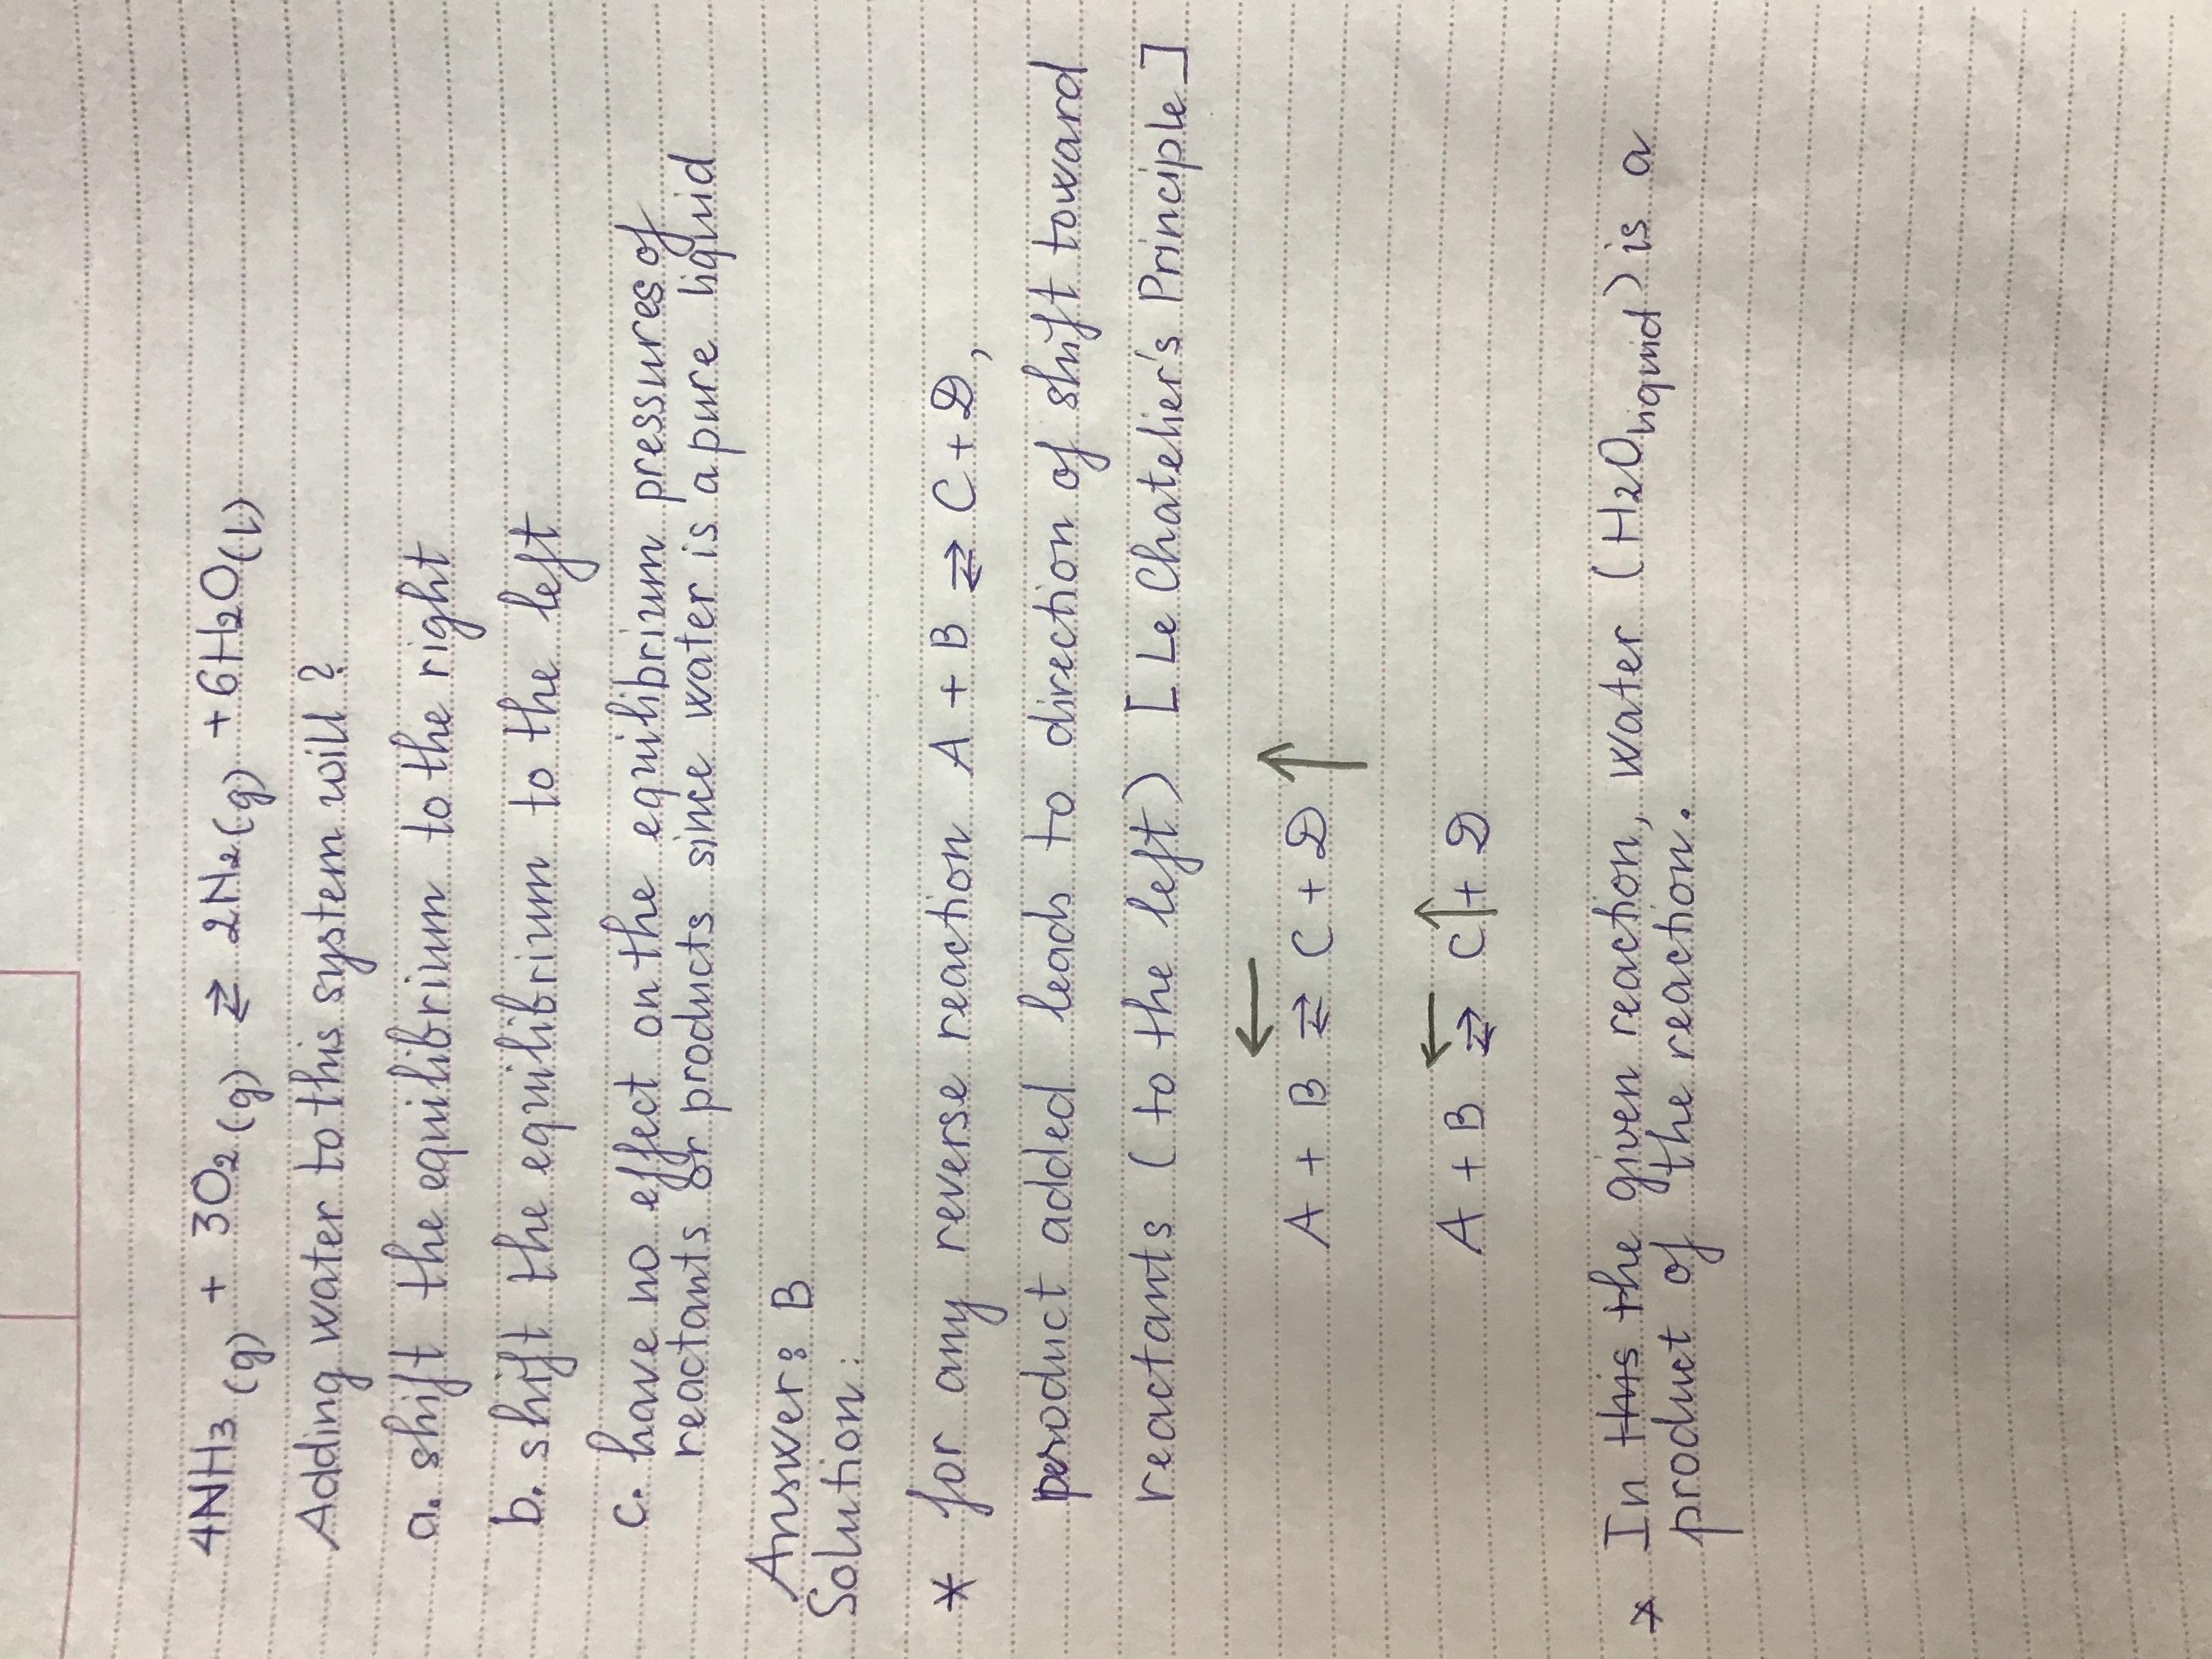 4NH3 (g) + 3O2 (g) ⇄ 2N2 (g) + 6H2O(l)
Adding water to this system will?
a. shift the equilibrium to the right
b. shift the equilibrium to the left
c. have no effect on the equilibrium pressures of
reactants or products since water is a pure liquid
Answer: B
Solution:
* for any reverse reaction A + B ⇄ C + D,
product added leads to direction of shift toward
reactants (to the left) [Le Chatelier's Principle]
←
A + B ⇄ C + D ↑
←
A + B ⇄ C↑ + D
* In this the given reaction, water (H2Oliquid) is a
product of the reaction.